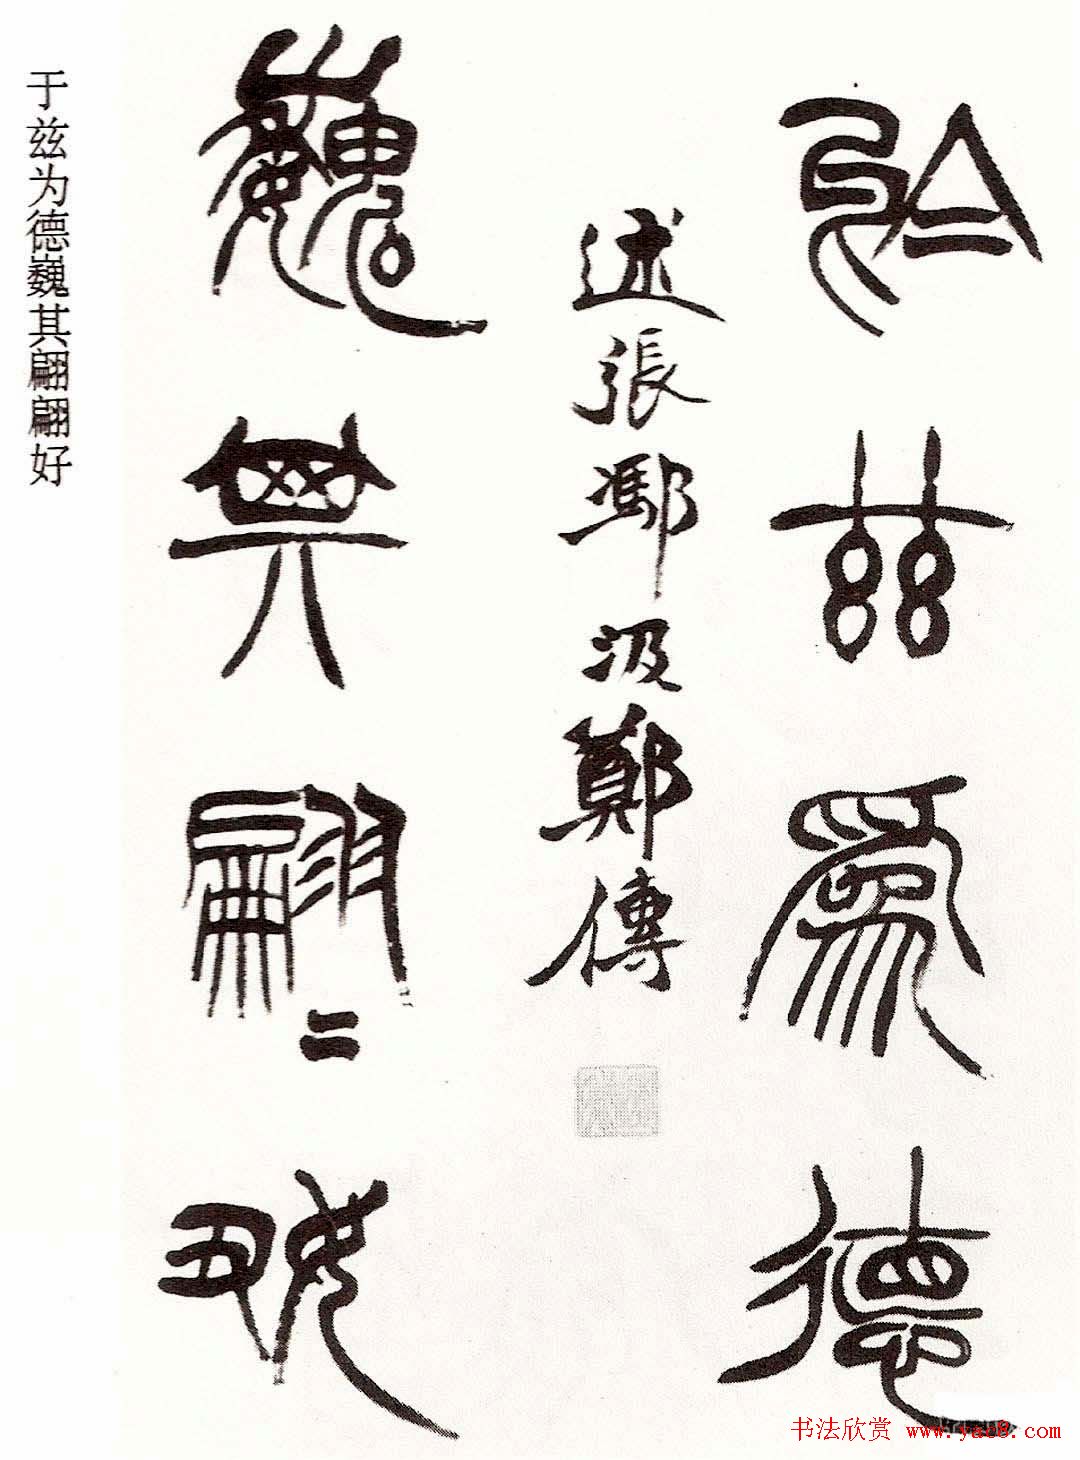 於兹為德
述張汲鄭傳
巍其翩二好
于兹为德巍其翩翩好
书法欣赏 www.yac8.com